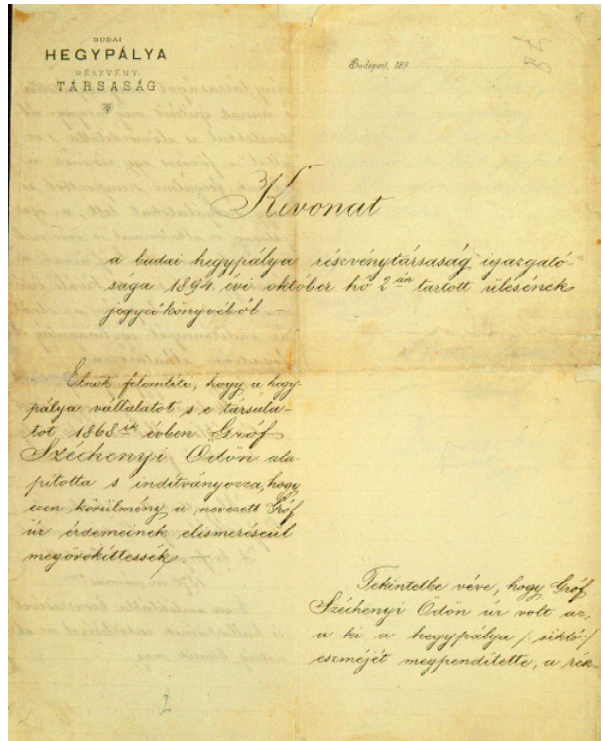 BUDAI
HEGYPÁLYA
RÉSZVÉNY-
TÁRSASÁG
Budapest, 189
Kivonat
a budai hegypálya részvénytársaság igazgató-
sága 1894. évi október hó 2 án tartott ülésének
jegyzőkönyvéből –
Elnök felemlíté, hogy a hegy-
pálya vállalatot s e társula-
tot 1868 ik évben Gróf
Széchenyi Ödön ala-
pította s indítványozza, hogy
ezen körülmény a nevezett Gróf
úr érdemeinek elismeréséül
megörökíttessék
Tekintetbe véve, hogy Gróf
Széchenyi Ödön úr volt az,
a ki a hegypálya /: sikló :/
eszméjét megpendítette, a rész-